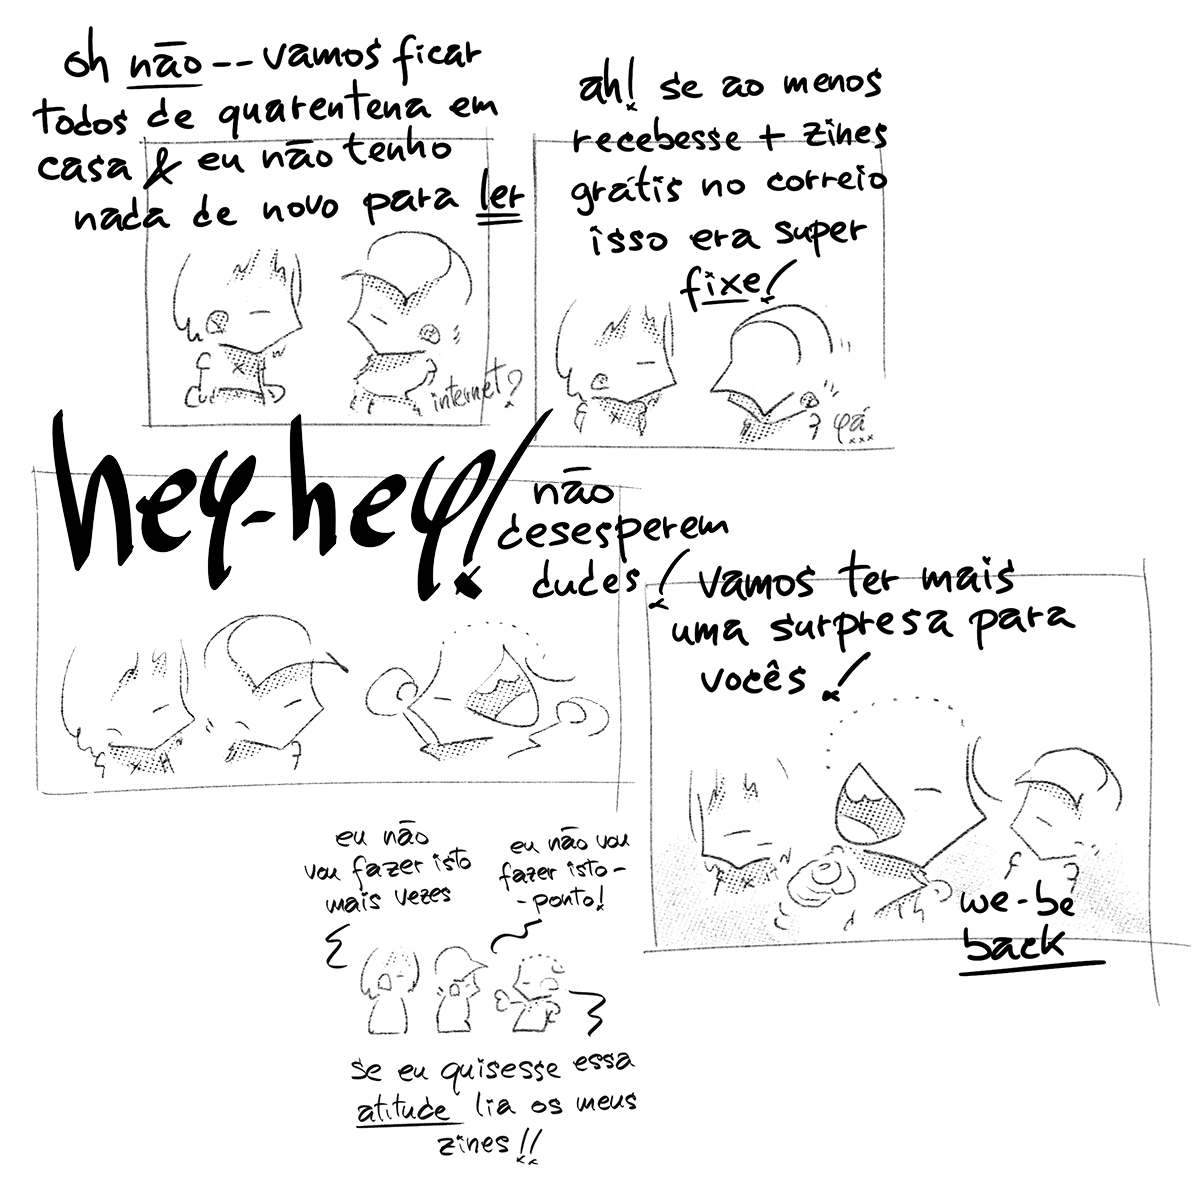 oh não -- vamos ficar
todos de quarentena em
casa & eu não tenho
nada de novo para ler
internet?
ah! se ao menos
recebesse + zines
grátis no correio
isso era super
fixe!
yá...
hey-hey!
não
desesperem
dudes!
vamos ter mais
uma surpresa para
vocês!
we-be
back
eu não
vou fazer isto
mais vezes
eu não vou
fazer isto -
- ponto!
se eu quisesse essa
atitude lia os meus
zines!!